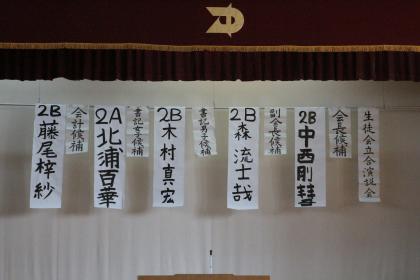 生徒会立合演説会
会長候補
2B中西剛彗
副会長候補
2B森流士哉
書記男子候補
2B木村真宏
書記女子候補
2A北浦百華
会計候補
2B藤尾梓紗